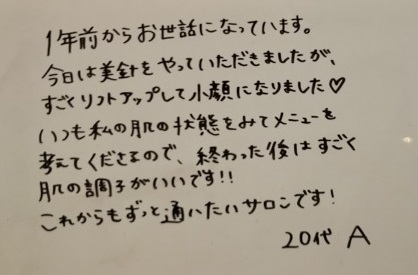 1年前からお世話になっています。
今日は美針をやっていただきましたが、
すごくリフトアップして小顔になりました♡
いつも私の肌の状態をみてメニューを
考えてくださるので、終わった後はすごく
肌の調子がいいです!!
これからもずっと通いたいサロンです!
20代 A